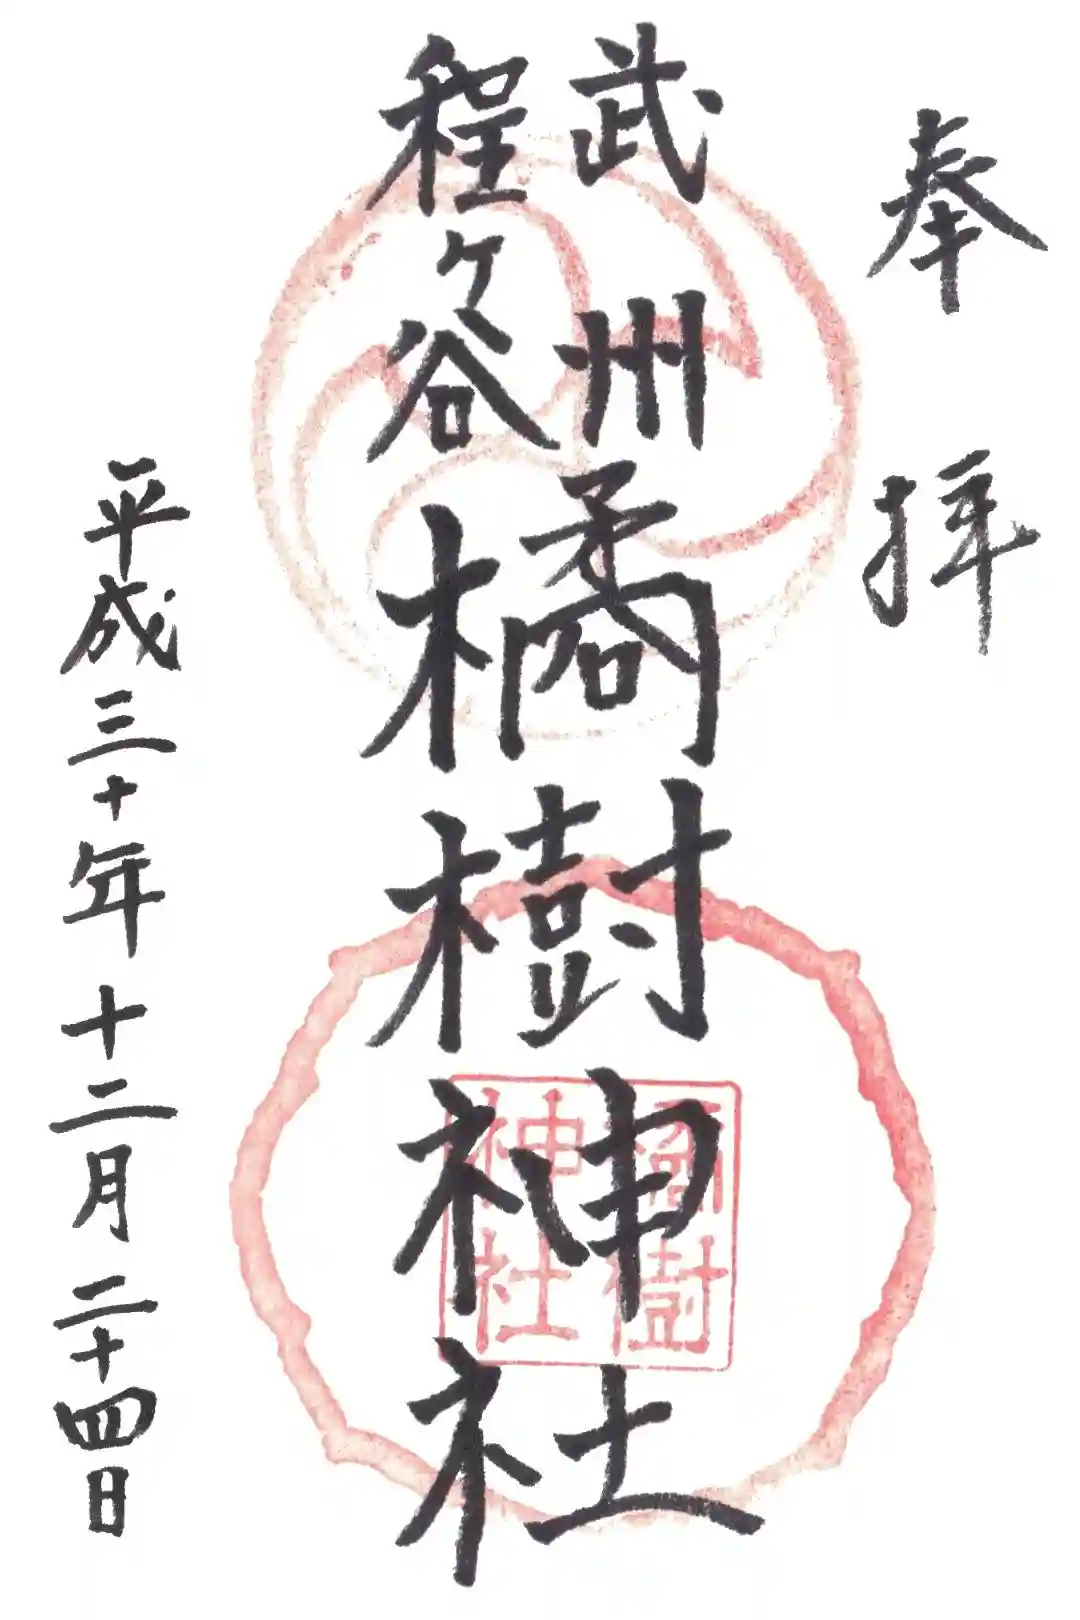 奉拝
武州
程ヶ谷
橘樹神社
橘樹
神社
平成三十年十二月二十四日